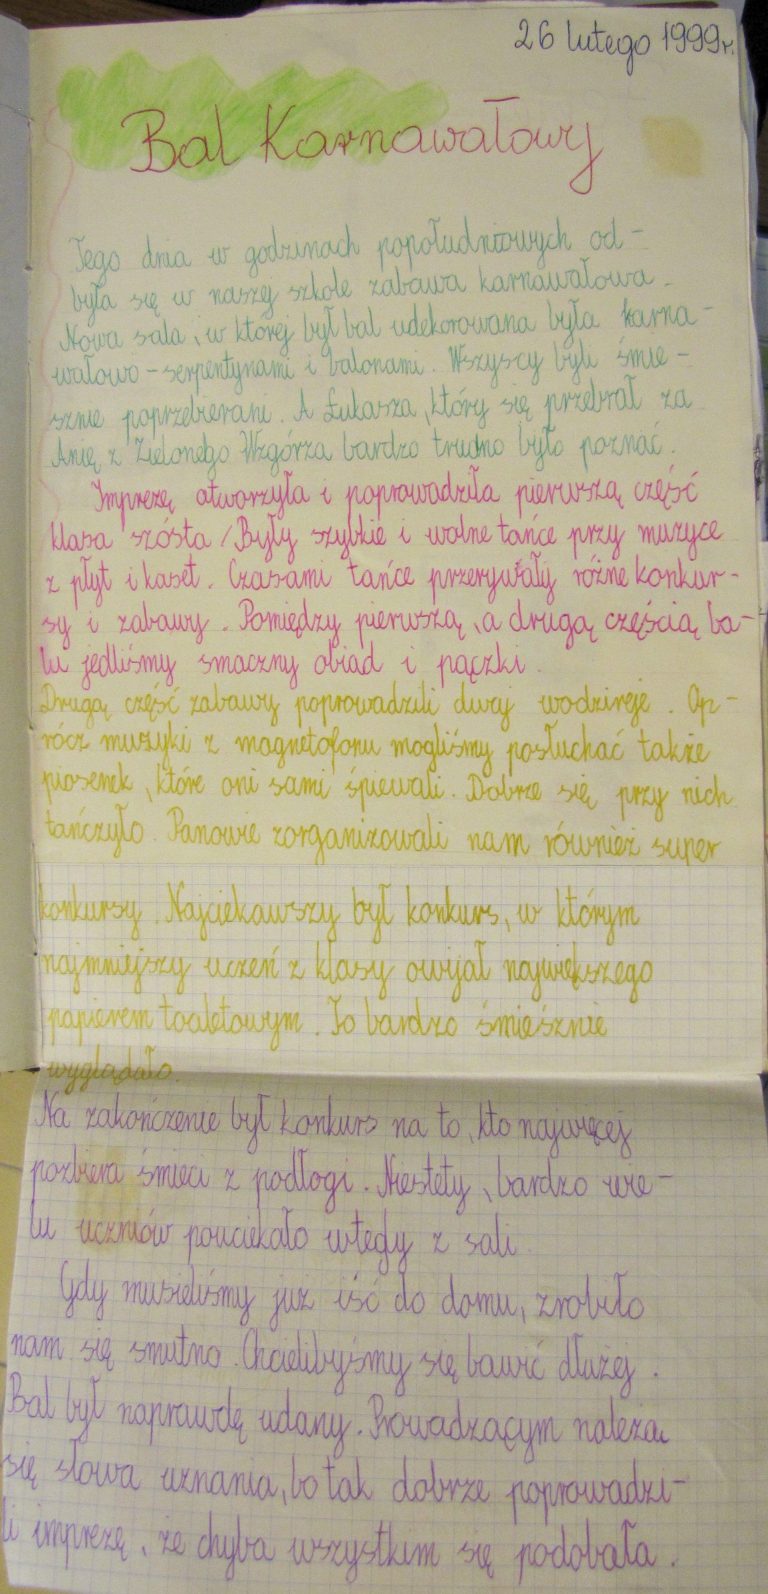 26 lutego 1999r.
Bal Karnawałowy
Tego dnia w godzinach popołudniowych od-
była się w naszej szkole zabawa karnawałowa.
Nowa sala, w której był bal udekorowana była karna-
wałowo - serpentynami i balonami. Wszyscy byli śmie-
sznie poprzebierani. A Łukasza, który się przebrał za
Anię z Zielonego Wzgórza bardzo trudno było poznać.
Imprezę otworzyła i poprowadziła pierwszą część
klasa szósta. Były szybkie i wolne tańce przy muzyce
z płyt i kaset. Czasami tańce przerywały różne konkur-
sy i zabawy. Pomiędzy pierwszą, a drugą częścią ba-
lu jedliśmy smaczny obiad i pączki.
Drugą część zabawy poprowadzili dwaj wodzireje. Op-
rócz muzyki z magnetofonu mogliśmy posłuchać także
piosenek, które oni sami śpiewali. Dobrze się przy nich
tańczyło. Panowie zorganizowali nam również super
konkursy. Najciekawszy był konkurs, w którym
najmniejszy uczeń z klasy owijał największego
papierem toaletowym. To bardzo śmiesznie
wyglądało.
Na zakończenie był konkurs na to, kto najwięcej
pozbiera śmieci z podłogi. Niestety, bardzo wie-
lu uczniów pouciekało wtedy z sali.
Gdy musieliśmy już iść do domu, zrobiło
nam się smutno. Chcielibyśmy się bawić dłużej.
Bal był naprawdę udany. Prowadzącym należą
się słowa uznania, bo tak dobrze poprowadzi-
li imprezę, że chyba wszystkim się podobała.